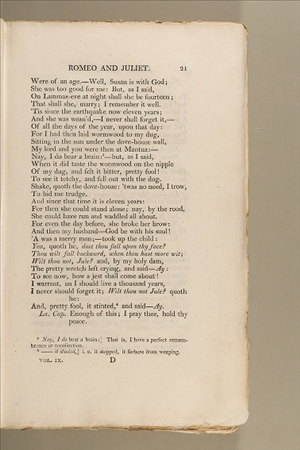 ROMEO AND JULIET. 21
Were of an age.—Well, Susan is with God;
She was too good for me: But, as I said,
On Lammas-eve at night shall she be fourteen;
That shall she, marry; I remember it well.
'Tis since the earthquake now eleven years;
And she was wean'd,—I never shall forget it,—
Of all the days of the year, upon that day:
For I had then laid wormwood to my dug,
Sitting in the sun under the dove-house wall,
My lord and you were then at Mantua:—
Nay, I do bear a brain:—but, as I said,
When it did taste the wormwood on the nipple
Of my dug, and felt it bitter, pretty fool!
To see it tetchy, and fall out with the dug.
Shake, quoth the dove-house: 'twas no need, I trow,
To bid me trudge.
And since that time it is eleven years:
For then she could stand alone; nay, by the rood,
She could have run and waddled all about.
For even the day before, she broke her brow:
And then my husband—God be with his soul!
'A was a merry man;—took up the child:
Yea, quoth he, dost thou fall upon thy face?
Thou wilt fall backward, when thou hast more wit;
Wilt thou not, Jule? and, by my holy dam,
The pretty wretch left crying, and said—Ay:
To see now, how a jest shall come about!
I warrant, an I should live a thousand years,
I never should forget it; Wilt thou not Jule? quoth
he:
And, pretty fool, it stinted,⁴ and said—Ay.
La. Cap. Enough of this; I pray thee, hold thy
peace.
³ Nay, I do bear a brain:] That is, I have a perfect remem-
brance or recollection.
⁴ —— it stinted,] i. e. it stopped, it forbore from weeping.
VOL. IX. D